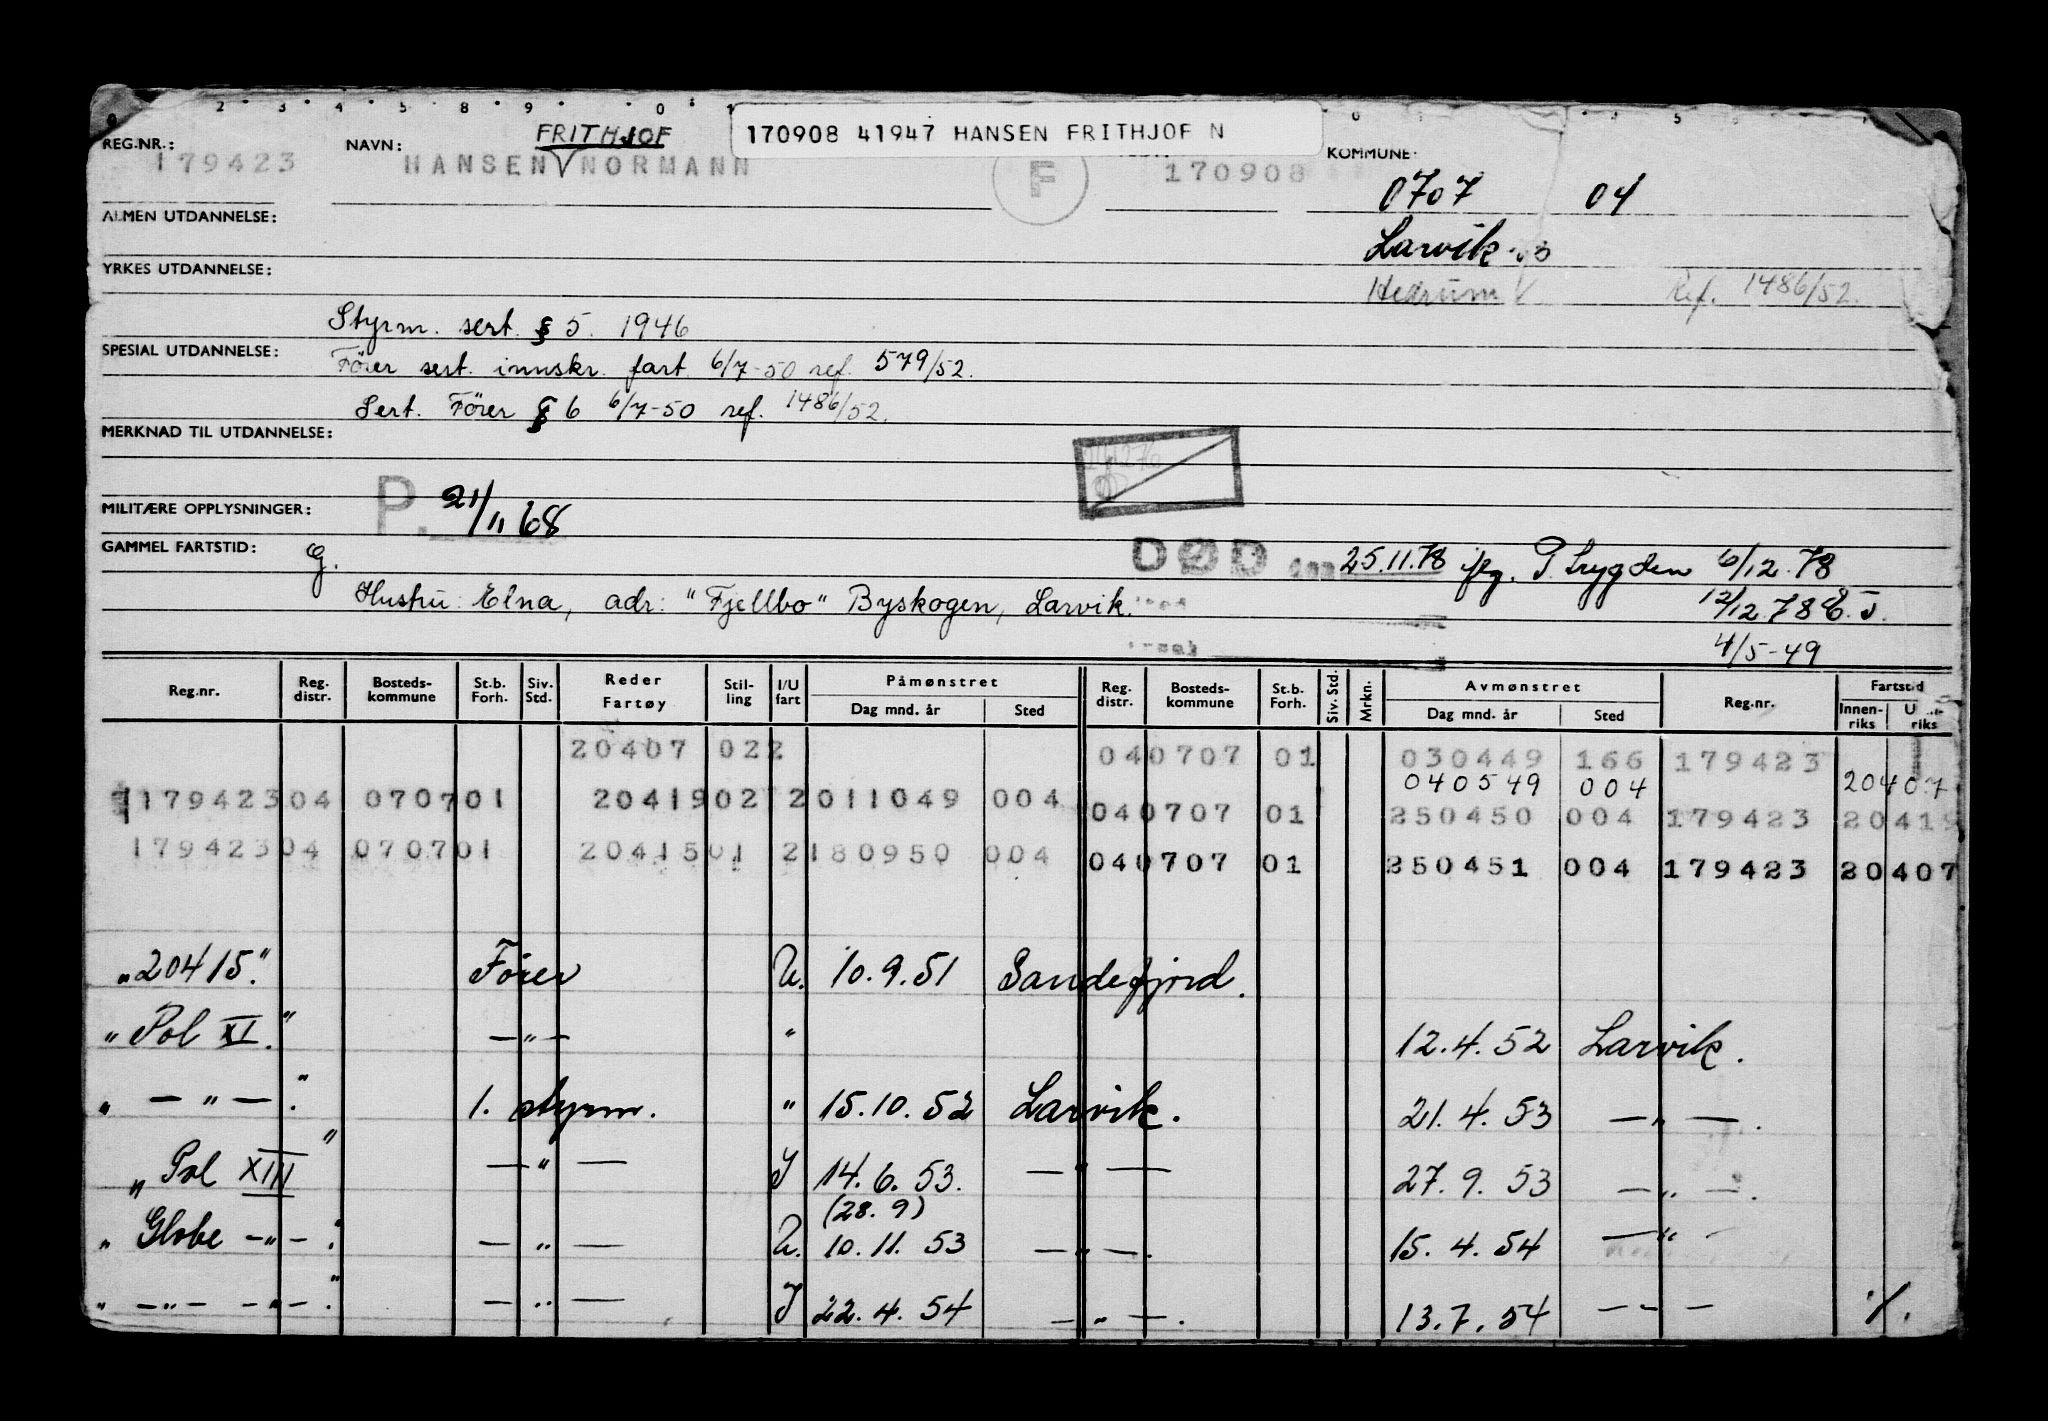 2 · 3 · 4 · 5 · 8 · 9 · 0 · 1
170908 41947 HANSEN FRITHJOF N
REG.NR.: 179423 NAVN: HANSEN FRITHJOF NORMANN F 170908 KOMMUNE:
0707 04
ALMEN UTDANNELSE:
Larvik
YRKES UTDANNELSE:
Hedrum Ref. 1486/52.
Styrm. sert. § 5. 1946
SPESIAL UTDANNELSE:
Förer sert. innskr. fart 6/7-50 ref. 579/52.
Sert. Förer § 6 6/7-50 ref. 1486/52.
MERKNAD TIL UTDANNELSE:
MILITÆRE OPPLYSNINGER: P. 21/11 68
GAMMEL FARTSTID: G.
DØD den 25.11.78 ifg. P. trygden 6/12.78
Hustru: Elna, adr: "Fjellbo" Byskogen, Larvik.
12/12.78
4/5-49
Reg.nr. Reg. distr. Bosteds-kommune St.b. Forh. Siv. Std. Reder Fartøy Stil-ling I/U fart Påmønstret Dag mnd. år Sted Reg. distr. Bosteds-kommune St.b. Forh. Siv. Std. Mrkn. Avmønstret Dag mnd. år Sted Reg.nr. Fartstid Innen-riks riks
20407 022 040707 01 030449 166 179423
040549 004 20407
179423 04 0707 01 20419 02 2 011049 004 040707 01 250450 004 179423 20419
179423 04 0707 01 20415 01 2 180950 004 040707 01 250451 004 179423 20407
"20415." Förer U. 10.9.51 Sandefjord.
"Pol XI." — " — " 12.4.52 Larvik.
" — " — ." 1. styrm. " 15.10.52 Larvik. 21.4.53 — " — .
"Pol XIII" — " — I 14.6.53. — " — 27.9.53 — " — .
(28.9)
"Globe — " — ." — " — U. 10.11.53 — " — . 15.4.54 — " —
" — " — — " — ." — " — I 22.4.54 — " — . 13.7.54 — - — ./.